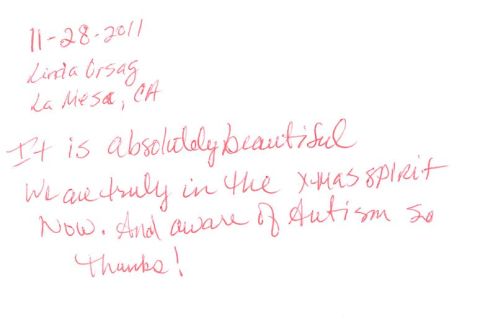 11-28-2011
Linia Orsag
La Mesa, CA
It is absolutely beautiful
We are truly in the X-mas spirit
Now. And aware of Autism so
thanks!